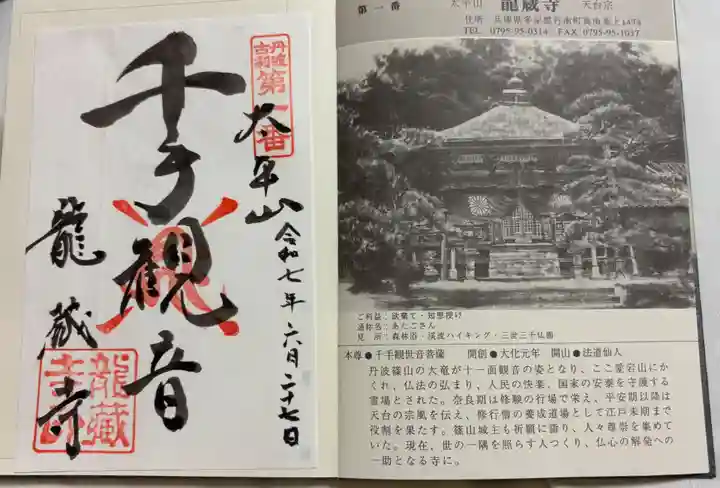 丹波
古刹
第一番
太平山
千手観音
令和七年六月二十七日
龍蔵寺
龍蔵
寺印
第一番 太平山 龍蔵寺 天台宗
TEL 0795-95-0314 FAX 0795-95-1037
ご利益:欲棄て・知恵授け
通称名:あたごさん
見 所:森林浴・渓流ハイキング・三世三千仏画
本尊●千手観世音菩薩 開創●大化元年 開山●法道仙人
丹波篠山の大竜が十一面観音の姿となり、ここ愛宕山にか
くれ、仏法の弘まり、人民の快楽、国家の安泰を守護する
霊場とされた。奈良期は修験の行場で栄え、平安期以降は
天台の宗風を伝え、修行僧の養成道場として江戸末期まで
役割を果たす。篠山城主も祈願に詣り、人々尊崇を集めて
いた。現在、世の一隅を照らす人づくり、仏心の解発への
一助となる寺に。